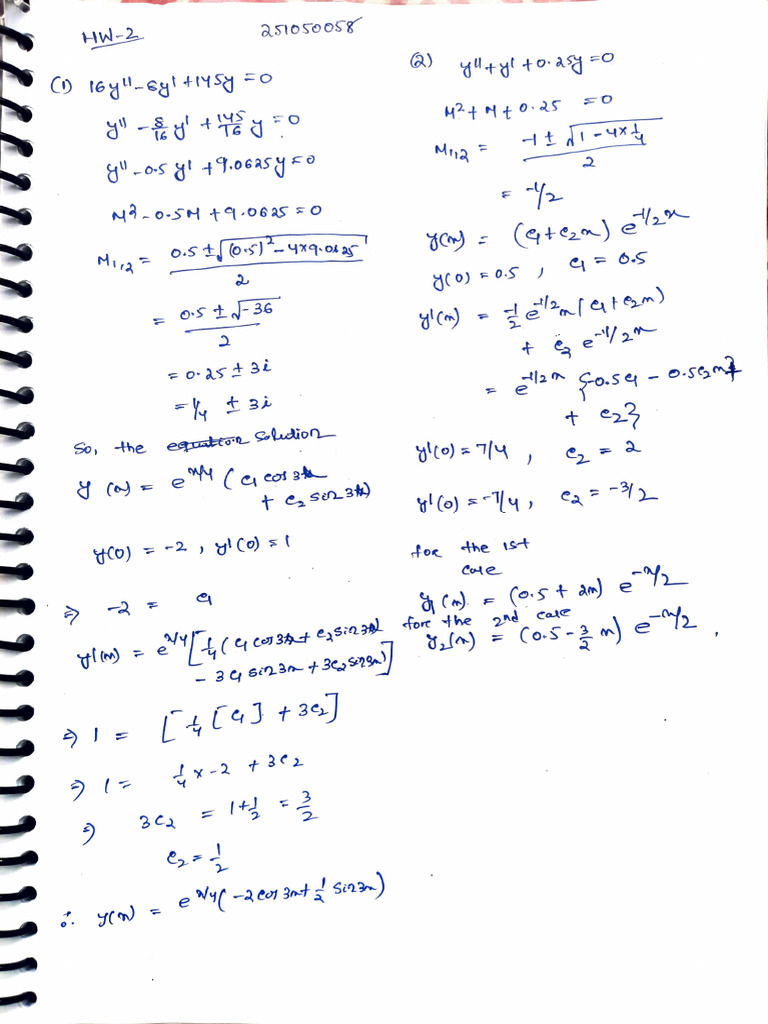 HW-2
251050058
(1) 16y'' - 8y' + 145y = 0
y'' - 8/16 y' + 145/16 y = 0
y'' - 0.5 y' + 9.0625y = 0
M² - 0.5M + 9.0625 = 0
M₁,₂ = (0.5 ± √((0.5)² - 4×9.0625)) / 2
= (0.5 ± √-36) / 2
= 0.25 ± 3i
= 1/4 ± 3i
So, the solution
y(x) = e^(x/4) (c₁ cos 3x
+ c₂ sin 3x)
y(0) = -2 , y'(0) = 1
⇒ -2 = c₁
y'(x) = e^(x/4) [1/4 (c₁ cos 3x + c₂ sin 3x)
- 3c₁ sin 3x + 3c₂ sin 3x]
⇒ 1 = [1/4 [c₁] + 3c₂]
⇒ 1 = 1/4 × -2 + 3c₂
⇒ 3c₂ = 1 + 1/2 = 3/2
c₂ = 1/2
∴ y(x) = e^(x/4) (-2 cos 3x + 1/2 sin 3x)
(2) y'' + y' + 0.25y = 0
M² + M + 0.25 = 0
M₁,₂ = (-1 ± √(1 - 4×1/4)) / 2
= -1/2
y(x) = (c₁ + c₂x) e^(-1/2 x)
y(0) = 0.5 , c₁ = 0.5
y'(x) = -1/2 e^(-1/2 x) (c₁ + c₂x)
+ c₂ e^(-1/2 x)
= e^(-1/2 x) {-0.5c₁ - 0.5c₂x
+ c₂}
y'(0) = 7/4 , c₂ = 2
y'(0) = -7/4 , c₂ = -3/2
for the 1st
case
y₁(x) = (0.5 + 2x) e^(-x/2)
for the 2nd case
y₂(x) = (0.5 - 3/2 x) e^(-x/2) .